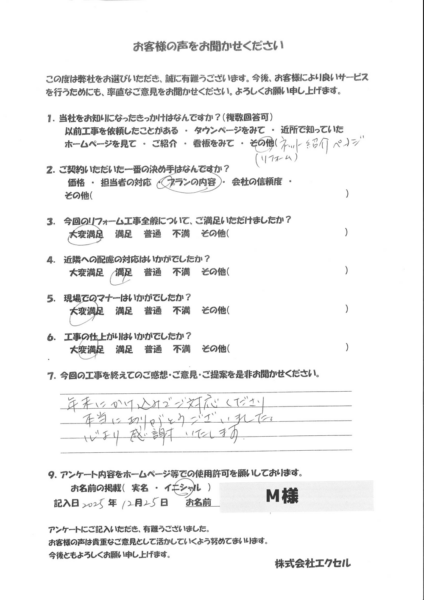 お客様の声をお聞かせください
この度は弊社をお選びいただき、誠に有難うございます。今後、お客様により良いサービス
を行うためにも、率直なご意見をお聞かせください。よろしくお願い申し上げます。
1. 当社をお知りになったきっかけはなんですか?(複数回答可)
以前工事を依頼したことがある ・ タウンページをみて ・ 近所で知っていた
ホームページを見て ・ ご紹介 ・ 看板をみて ・ その他( ネット紹介ページ
(リフォーム)
2. ご契約いただいた一番の決め手はなんですか?
価格 ・ 担当者の対応 ・ プランの内容 ・ 会社の信頼度 ・
その他( )
3. 今回のリフォーム工事全般について、ご満足いただけましたか?
大変満足 満足 普通 不満 その他( )
4. 近隣への配慮の対応はいかがでしたか?
大変満足 満足 普通 不満 その他( )
5. 現場でのマナーはいかがでしたか?
大変満足 満足 普通 不満 その他( )
6. 工事の仕上がりはいかがでしたか?
大変満足 満足 普通 不満 その他( )
7. 今回の工事を終えてのご感想・ご意見・ご提案を是非お聞かせください。
年末にかけ込みでご対応くださり
本当にありがとうございました。
心より感謝いたします
9. アンケート内容をホームページ等での使用許可を願いしております。
お名前の掲載( 実名 ・ イニシャル )
記入日 2025 年 12 月 25 日 お名前 M様
アンケートにご記入いただき、有難うございました。
お客様の声は貴重なご意見として活かしていくよう努めてまいります。
今後ともよろしくお願い申し上げます。
株式会社エクセル